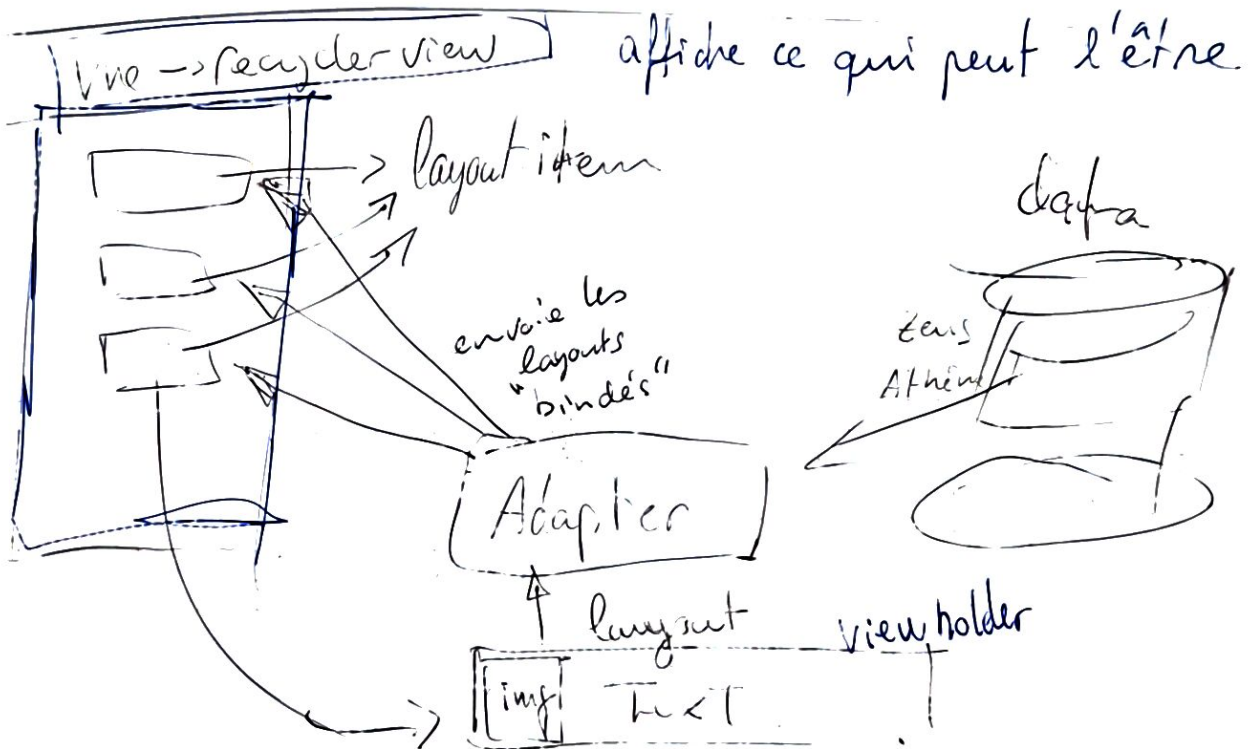 Vue -> recycler view
affiche ce qui peut l'être
layout item
data
envoie les
layouts
"bindés"
Zeus
Athéna
Adapter
layout
viewholder
img
TexT